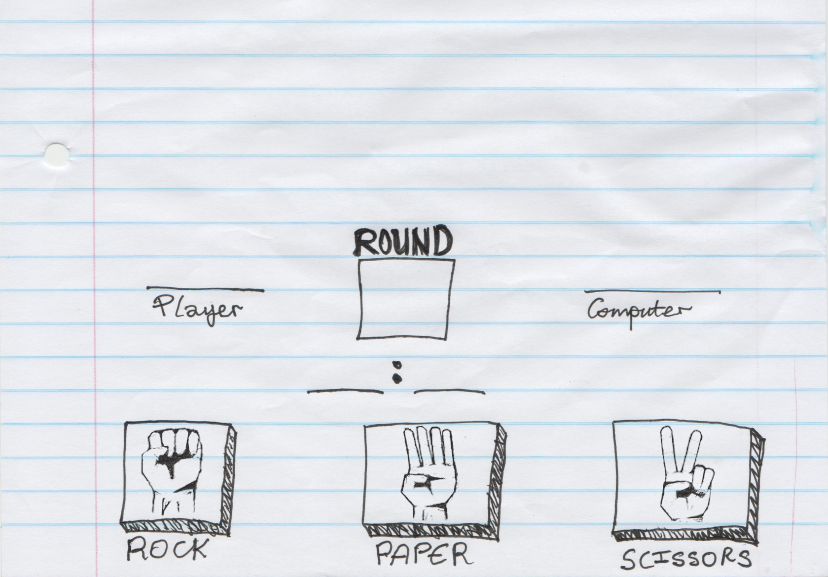 ROUND
Player
Computer
:
ROCK
PAPER
SCISSORS